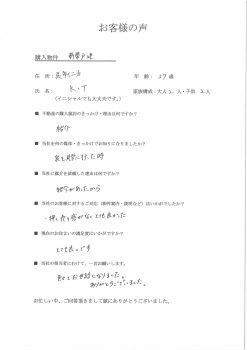 お客様の声
購入物件 新築戸建
住 所： 年 齢： 37 歳
氏 名： K.T 家族構成：大人 2 人・子供 2 人
(イニシャルでも大丈夫です。)
■ 不動産の購入検討のきっかけ・理由は何ですか？
紹介
■ 当社を何の媒体・きっかけでお知りになりましたか？
家を探しに行った時
■ 当社に紹介を依頼した理由は何ですか？
紹介があったから
■ 当社のお客様に対するご対応（物件案内・説明など）はいかがでしたか？
押し売り感がなくとても良かった
■ 現在のお住まいの満足度はいかがですか？
とても良いです
■ 当社の担当者にむけて、一言お願いします。
お世話になりました。
ありがとうございました。
お忙しい中、ご回答頂きまして誠にありがとうございました。